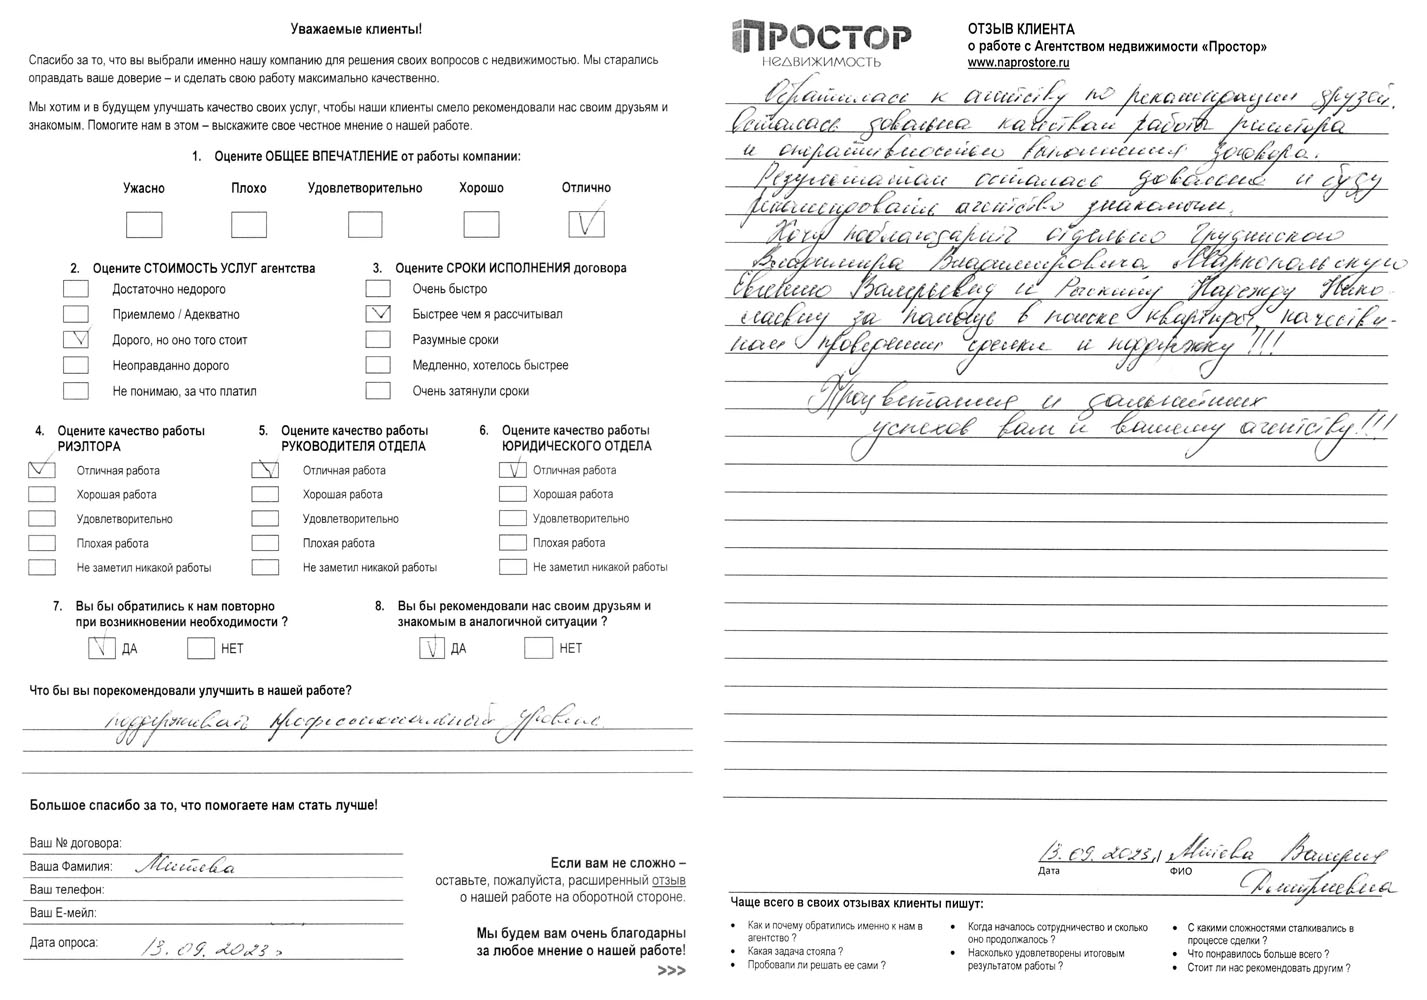 Уважаемые клиенты!
Спасибо за то, что вы выбрали именно нашу компанию для решения своих вопросов с недвижимостью. Мы старались
оправдать ваше доверие – и сделать свою работу максимально качественно.
Мы хотим и в будущем улучшать качество своих услуг, чтобы наши клиенты смело рекомендовали нас своим друзьям и
знакомым. Помогите нам в этом – выскажите свое честное мнение о нашей работе.
1. Оцените ОБЩЕЕ ВПЕЧАТЛЕНИЕ от работы компании:
Ужасно Плохо Удовлетворительно Хорошо Отлично
2. Оцените СТОИМОСТЬ УСЛУГ агентства
Достаточно недорого
Приемлемо / Адекватно
Дорого, но оно того стоит
Неоправданно дорого
Не понимаю, за что платил
3. Оцените СРОКИ ИСПОЛНЕНИЯ договора
Очень быстро
Быстрее чем я рассчитывал
Разумные сроки
Медленно, хотелось быстрее
Очень затянули сроки
4. Оцените качество работы
РИЭЛТОРА
Отличная работа
Хорошая работа
Удовлетворительно
Плохая работа
Не заметил никакой работы
5. Оцените качество работы
РУКОВОДИТЕЛЯ ОТДЕЛА
Отличная работа
Хорошая работа
Удовлетворительно
Плохая работа
Не заметил никакой работы
6. Оцените качество работы
ЮРИДИЧЕСКОГО ОТДЕЛА
Отличная работа
Хорошая работа
Удовлетворительно
Плохая работа
Не заметил никакой работы
7. Вы бы обратились к нам повторно
при возникновении необходимости ?
ДА НЕТ
8. Вы бы рекомендовали нас своим друзьям и
знакомым в аналогичной ситуации ?
ДА НЕТ
Что бы вы порекомендовали улучшить в нашей работе?
поддерживать профессиональный уровень.
Большое спасибо за то, что помогаете нам стать лучше!
Ваш № договора:
Ваша Фамилия: Митева
Ваш телефон:
Ваш E-мейл:
Дата опроса: 13.09.2023г
Если вам не сложно –
оставьте, пожалуйста, расширенный отзыв
о нашей работе на оборотной стороне.
Мы будем вам очень благодарны
за любое мнение о нашей работе!
>>>
ПРОСТОР
НЕДВИЖИМОСТЬ
ОТЗЫВ КЛИЕНТА
о работе с Агентством недвижимости «Простор»
www.naprostore.ru
Обратилась к агентству по рекомендации друзей.
Осталась довольна качеством работы риэлтора
и оперативностью выполнения договора.
Результатам осталась довольна и буду
рекомендовать агентство знакомым.
Хочу поблагодарить отдельно Грудинского
Владимира Владимировича, Маркопольскую
Евгению Валерьевну и Раскину Надежду Нико-
лаевну за помощь в поиске квартиры, качествен-
ном проведении сделки и поддержку!!!
Процветания и дальнейших
успехов вам и вашему агентству!!!
13.09.2023г Митева Валерия
Дата ФИО
Дмитриевна
Чаще всего в своих отзывах клиенты пишут:
• Как и почему обратились именно к нам в
агентство ?
• Какая задача стояла ?
• Пробовали ли решать ее сами ?
• Когда началось сотрудничество и сколько
оно продолжалось ?
• Насколько удовлетворены итоговым
результатом работы ?
• С какими сложностями сталкивались в
процессе сделки ?
• Что понравилось больше всего ?
• Стоит ли нас рекомендовать другим ?